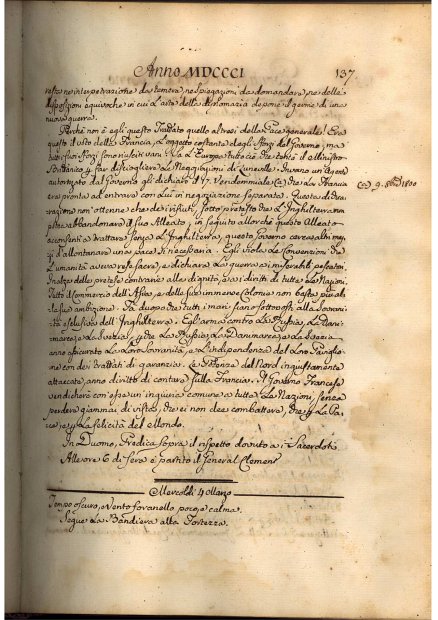 Anno MDCCCI
137.
resta ne interpretazione da temere, ne spiegazioni da domandare, ne delle
disposizioni equivoche in cui l'arte della diplomazia depone il germe di una
nuova guerra.
Perchè non è egli questo Trattato quello altresi della Pace generale! Era
questo il voto della Francia, l'oggetto costante degli sforzi del Governo; ma
tutti i suoi sforzi sono riusciti vani. L'Europa tutta
Britannico far disciogliere le Negoziazioni di Luneville. Invano un Agente
autorizzato dal Governo gli dichiarò il 17. Vendemmiale (a) che la Francia
(a) 9. 8bre 1800
era pronta ad entrare con lui in negoziazione separata. Questa dichia-
razione non ottenne che dei rifiuti, sotto pretesto che l'Inghilterra non
potesse abbandonare il suo Alleato, in seguito allorchè questo Alleato
acconsentì a trattare senza l'Inghilterra, questo Governo cerca altri mez-
zi d'allontanare una pace sì necessaria. Egli viola le Convenzioni che
l'umanità aveva rese sacre, e dichiara la guerra a miserabili pescatori.
Inalza delle pretese contrarie alla dignità, e a i diritti di tutte le Nazioni.
Tutto il commercio dell'Asia, e delle sue immense Colonie non basta più al-
la sua ambizione. Fa duopo che tutti i mari siano sottoposti alla Sovrani-
tà esclusiva dell'Inghilterra. Egli arma contro la Russia, la Dani-
marca, e la Svezia, perchè la Russia, la Danimarca, e la Svezia
anno assicurato la loro Sovranità, e l'indipendenza del loro Padiglio-
ne con dei trattati di garanzia. Le Potenze del Nord ingiustamente
attaccate, anno diritto di contare sulla Francia. Il Governo Francese
vendicherà con esse un ingiuria comune a tutte le Nazioni, senza
perdere giammai di vista, che ei non dee combattere, che per la Pa-
ce, e per la felicità del Mondo.
In Duomo, Predica sopra il rispetto dovuto a i Sacerdoti.
Alle ore 6 di sera è partito il General Clement
Mercoldì 4 Marzo
Tempo oscuro, e Vento foranello poco, e calma.
Segue la Bandiera alla Fortezza.